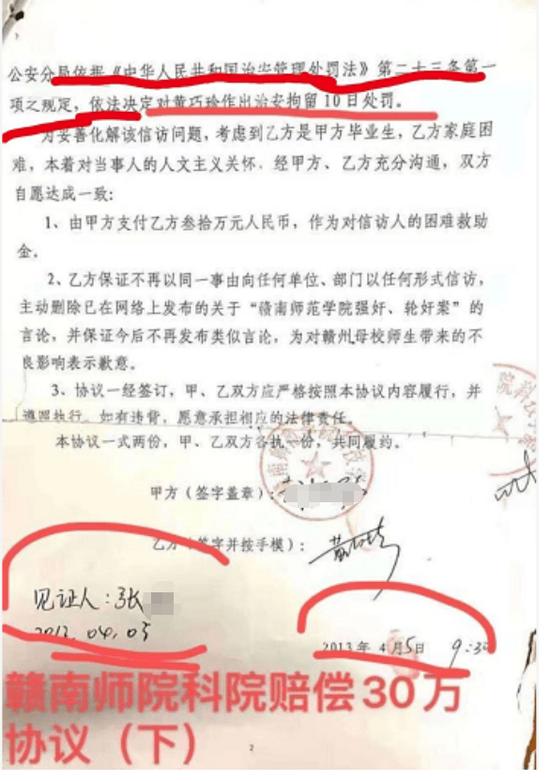 公安分局依据《中华人民共和国治安管理处罚法》第二十三条第一
项之规定，依法决定对黄巧玲作出治安拘留10日处罚。
为妥善化解该信访问题，考虑到乙方是甲方毕业生，乙方家庭困
难，本着对当事人的人文主义关怀，经甲方、乙方充分沟通，双方
自愿达成一致：
1、由甲方支付乙方叁拾万元人民币，作为对信访人的困难救助
金。
2、乙方保证不再以同一事由向任何单位、部门以任何形式信访，
主动删除已在网络上发布的关于“赣南师范学院强奸、轮奸案”的
言论，并保证今后不再发布类似言论，为对赣州母校师生带来的不
良影响表示歉意。
3、协议一经签订，甲、乙双方应严格按照本协议内容履行，并
遵照执行。如有违背，愿意承担相应的法律责任。
本协议一式两份，甲、乙双方各执一份，共同履约。
甲方（签字盖章）：
乙方（签字并按手模）：
见证人：张
2013.04.05
2013年4月5日 9:30
赣南师院科院赔偿30万
协议（下）
2